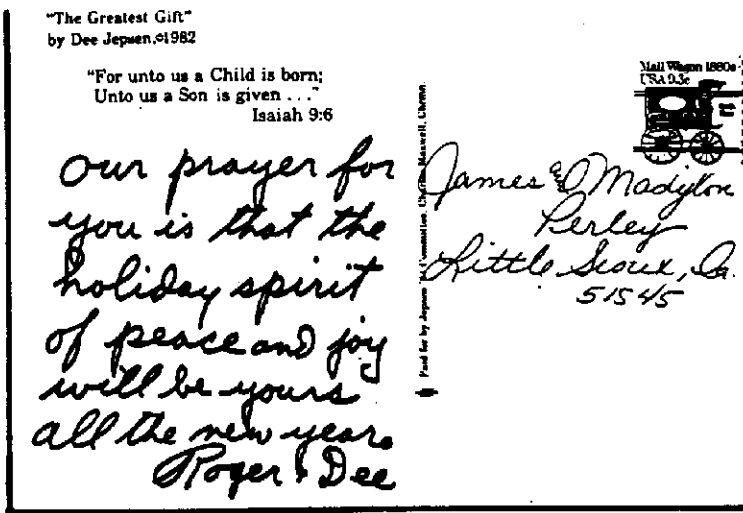 "The Greatest Gift"
by Dee Jepsen,©1982
"For unto us a Child is born;
Unto us a Son is given . . ."
Isaiah 9:6
our prayer for
you is that the
holiday spirit
of peace and joy
will be yours
all the new year.
Roger & Dee
Paid for by Jepsen '84 Committee, Charles Maxwell, Chrmn.
Mail Wagon 1880s
USA 9.3c
James & Madylon
Perley
Little Sioux, Ia.
51545